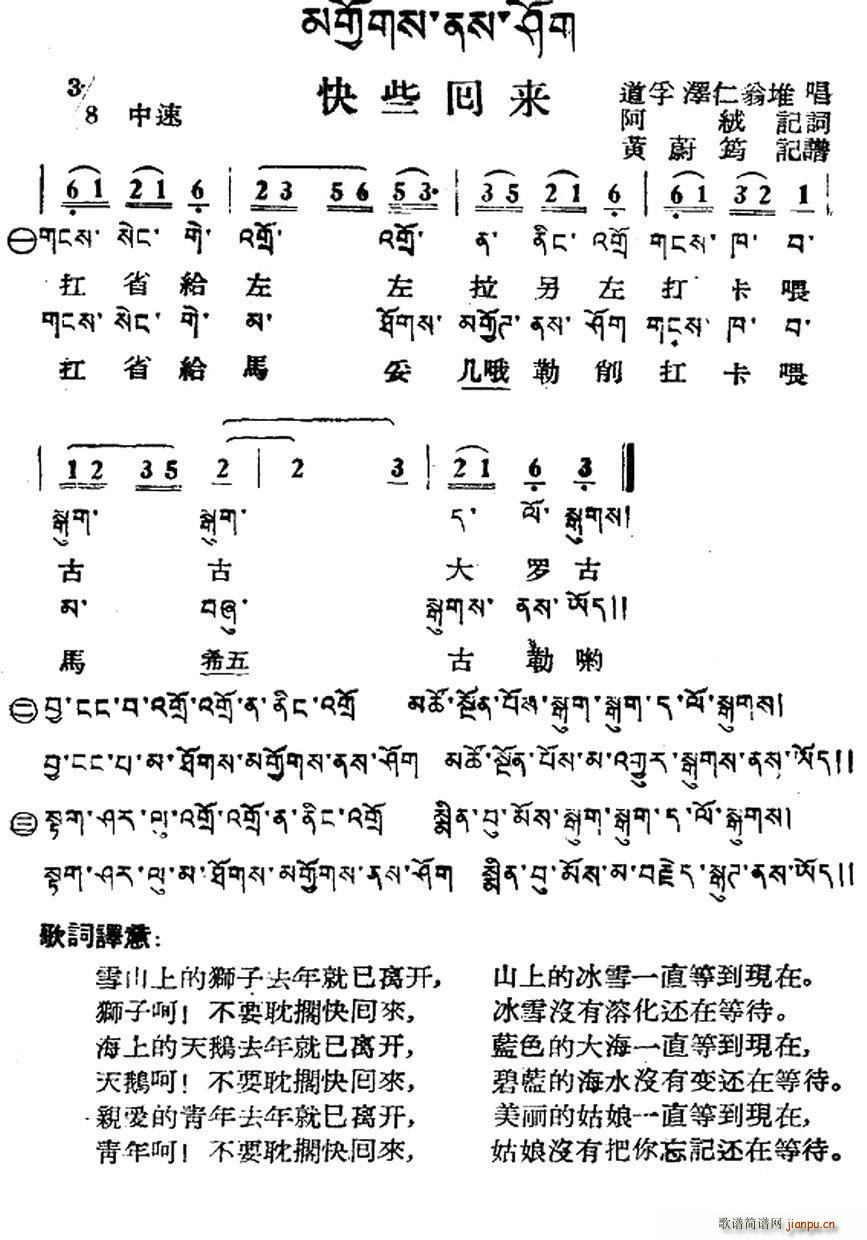 མགྱོགས་ནས་ཤོག
快些回来
3/8 中速
道孚 澤仁翁堆 唱
阿絨 記詞
黃蔚筠 記譜
6 1 2 1 6 | 2 3 5 6 5 3· | 3 5 2 1 6 | 6 1 3 2 1 |
㊀གངས་ སེང་ གེ་ འགྲོ་ འགྲོ་ ན་ ནིང་ འགྲོ གངས་ ཁ་ བ་
扛 省 給 左 左 拉 另 左 打 卡 喂
གངས་ སེང་ གེ་ མ་ ཐོགས་ མགྱོཊ་ ནས་ ཤོག གངས་ ཁ་ བ་
扛 省 給 馬 妥 几哦 勒 削 扛 卡 喂
1 2 3 5 2 | 2 3 | 2 1 6 3
སྒུག་ སྒུག་ ད་ ལོ་ སྒུགས།
古 古 大 罗 古
མ་ བཞུ་ སྒུགས་ ནས་ ཡོད།།
馬 希五 古 勒 喲
㊁བྱ་ངང་བ་འགྲོ་འགྲོ་ན་ནིང་འགྲོ མཚོ་སྔོན་པོས་སྒུག་སྒུག་ད་ལོ་སྒུགས།
བྱ་ངང་པ་མ་ཐོགས་མགྱོགས་ནས་ཤོག མཚོ་སྔོན་པོས་མ་འགྱུར་སྒུགས་ནས་ཡོད།།
㊂སྟག་ཤར་ལུ་འགྲོ་འགྲོ་ན་ནིང་འགྲོ སྨིན་བུ་མོས་སྒུག་སྒུག་ད་ལོ་སྒུགས།
སྟག་ཤར་ལུ་མ་ཐོགས་མགྱོགས་ནས་ཤོག སྨིན་བུ་མོས་མ་བརྗེད་སྒུཊ་ནས་ཡོད།།
歌詞譯意：
雪山上的獅子去年就已离开， 山上的冰雪一直等到現在。
獅子呵！不要耽擱快回來， 冰雪沒有溶化还在等待。
海上的天鵝去年就已离开， 藍色的大海一直等到現在，
天鵝呵！不要耽擱快回來， 碧藍的海水沒有变还在等待。
親愛的青年去年就已离开， 美丽的姑娘一直等到現在，
青年呵！不要耽擱快回來， 姑娘沒有把你忘記还在等待。
歌谱简谱网 jianpu.cn